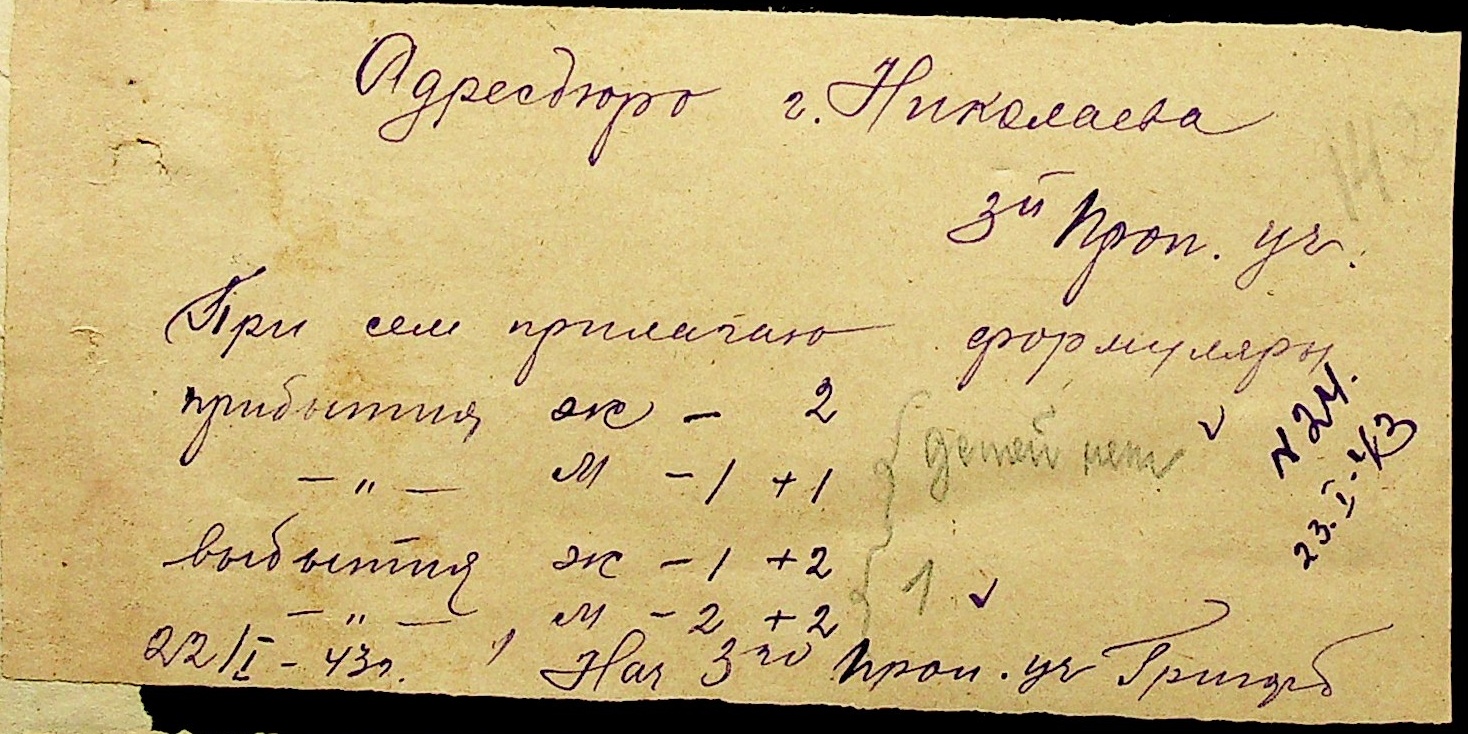 Адресбюро г. Николаева
142
3й Проп. уч.
При сем прилагаю формуляры
прибытия ж — 2
— „ — м — 1 + 1
детей нет
выбытия ж — 1 + 2
— „ — м — 2 + 2
1
N 24.
23.I.43
22/I – 43г. Нач 3го проп. уч